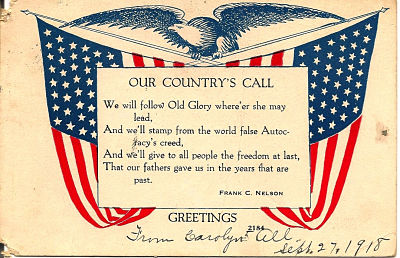 OUR COUNTRY'S CALL
We will follow Old Glory where'er she may
lead,
And we'll stamp from the world false Autoc-
racy's creed,
And we'll give to all people the freedom at last,
That our fathers gave us in the years that are
past.
FRANK C. NELSON
GREETINGS
2184
From Carolyn All
Sept. 27, 1918